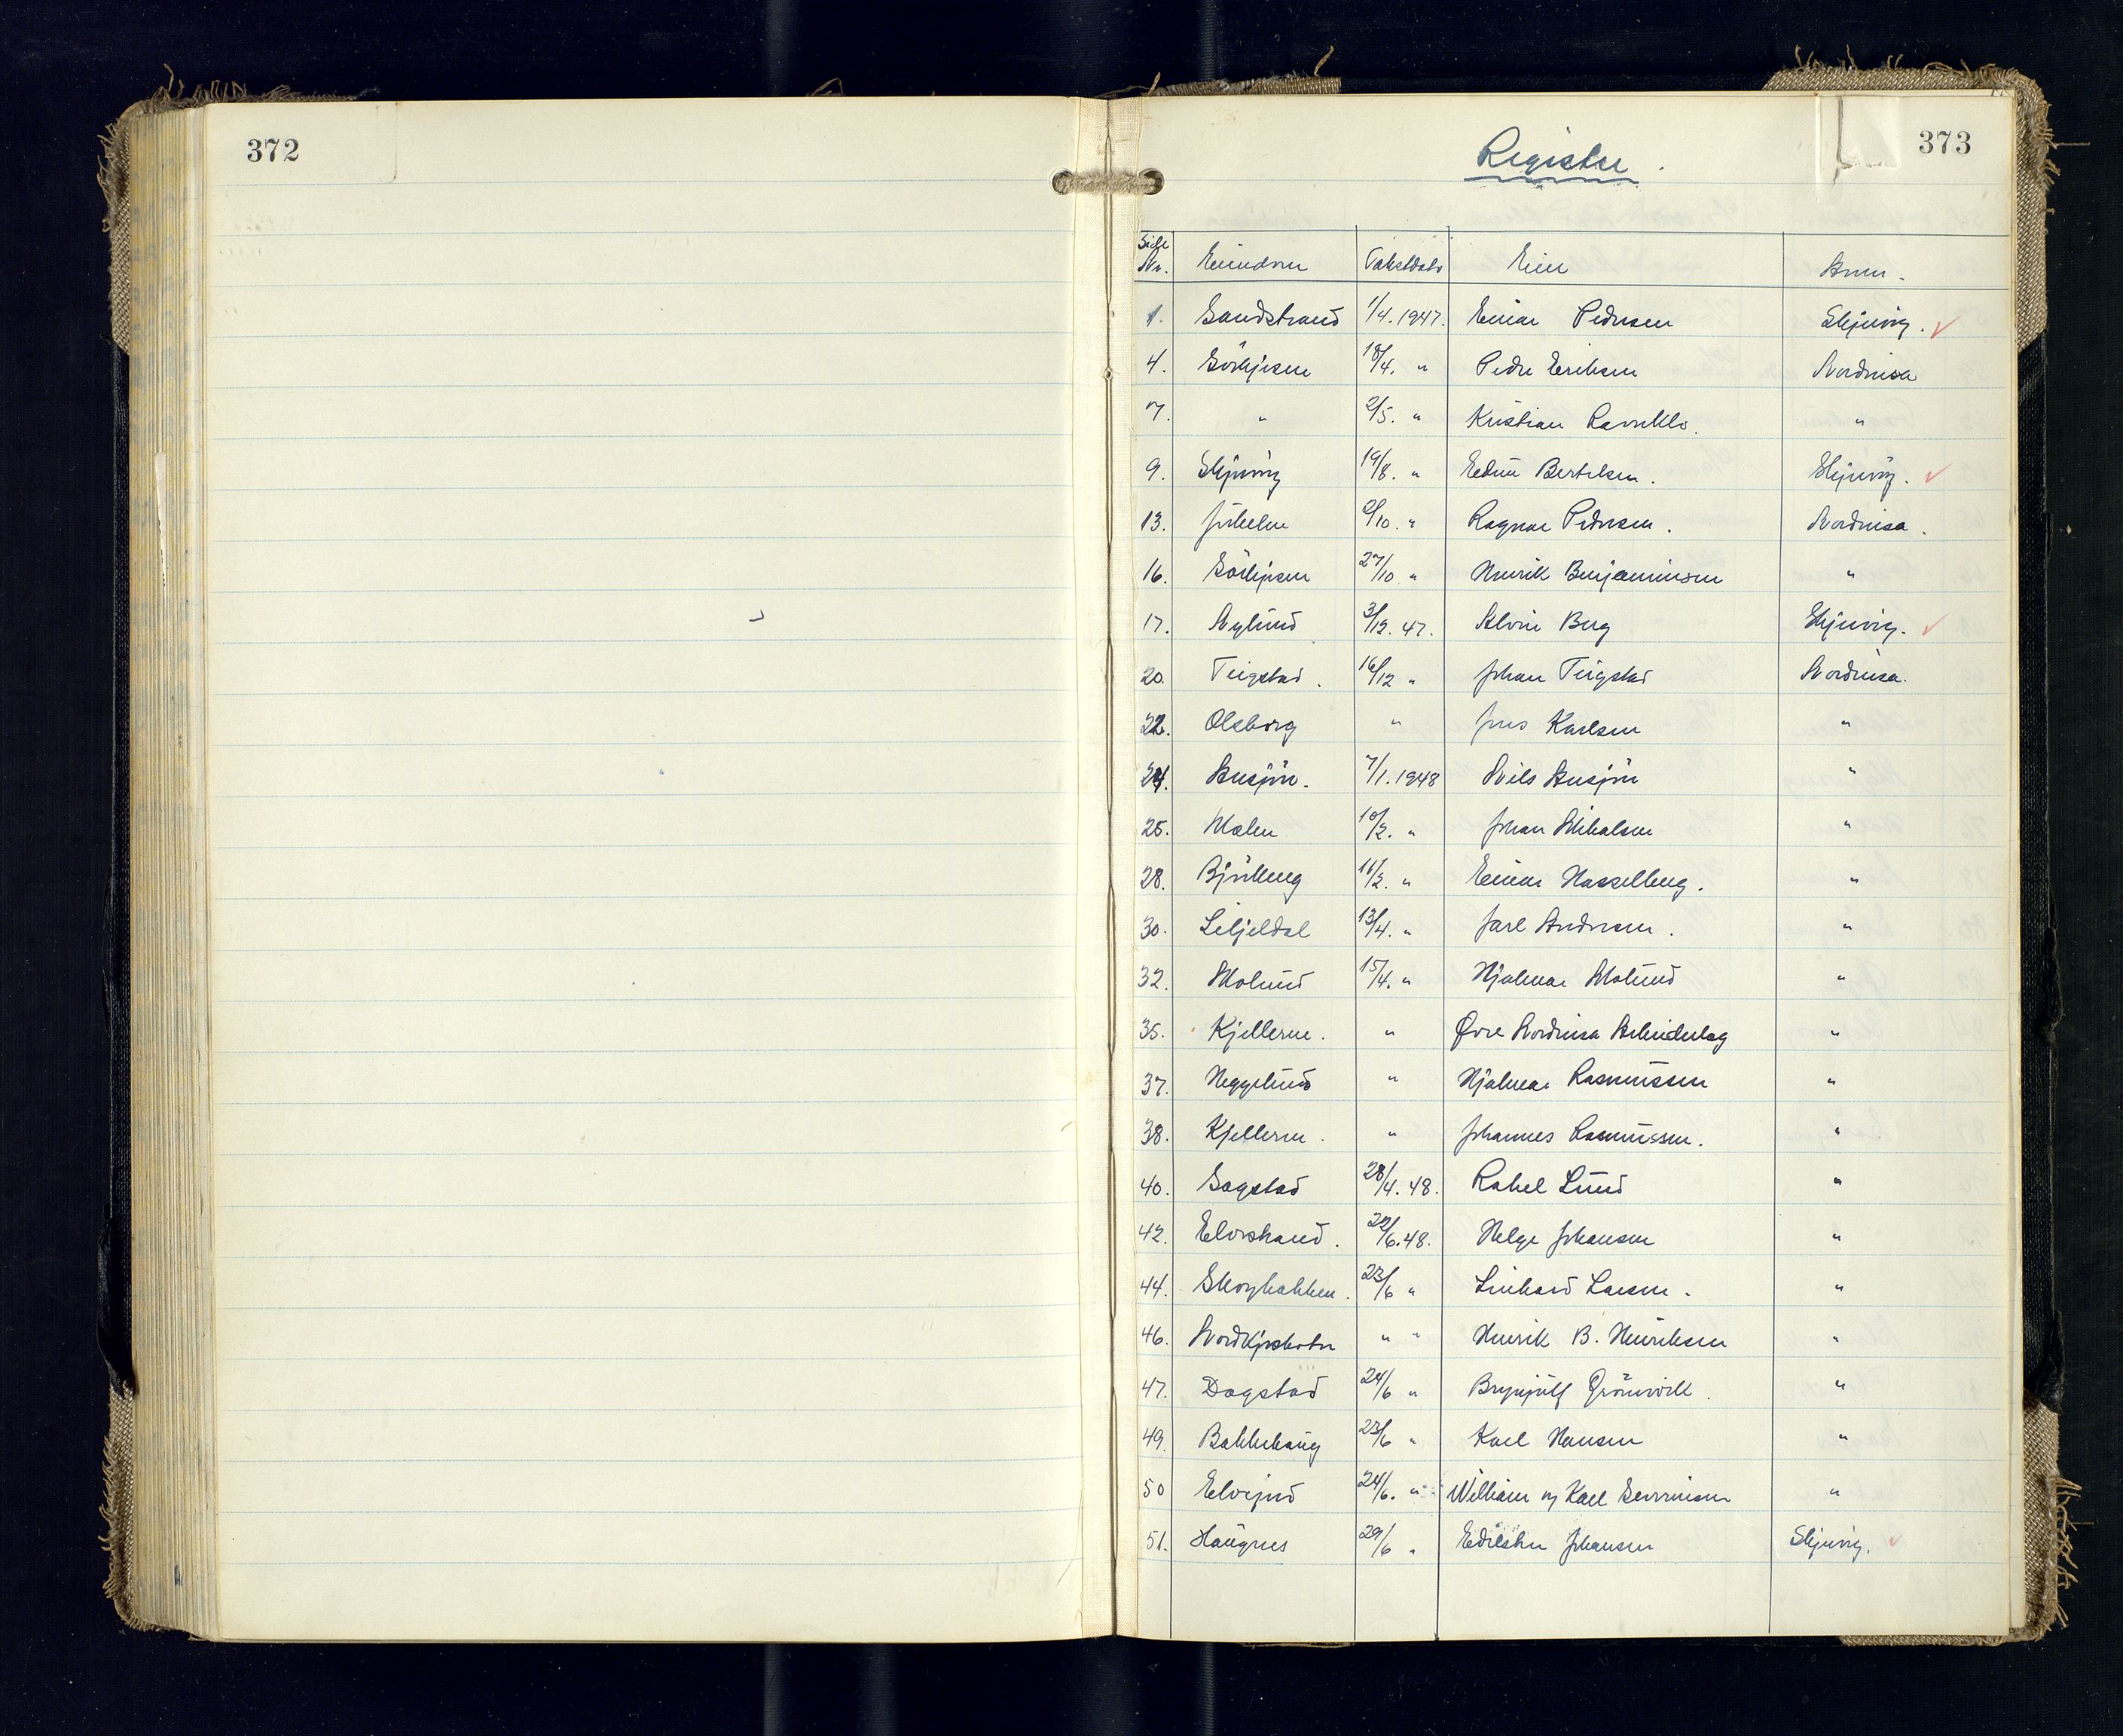 372
373
Register.
Side Nr. Eiendom Takstdato Eier Anm.
1. Sandstrand 1/4. 1947. Einar Pedersen Skjervøy. ✓
4. Sörkjosen 18/4. " Peder Eriksen Nordreisa
7. " 2/5. " Kristian Ravnklo. "
9. Skjervöy 19/8. " Edvin Bertelsen. Skjervöy. ✓
13. Jubelen 2/10. " Ragnar Pedersen. Nordreisa.
16. Sörkjosen 27/10 " Henrik Benjaminsen "
17. Nylund 3/12. 47. Alvin Berg Skjervøy. ✓
20. Teigstad. 16/12 " Johan Teigstad Nordreisa.
22. Olsborg " Jens Karlsen "
24. Ansjön. 7/1. 1948 Nils Ansjön "
25. Molen 10/2. " Johan Mikalsen "
28. Björkeng 11/2. " Einar Hasselberg. "
30. Liljeldal 13/4. " Jarl Andersen. "
32. Molund 15/4. " Hjalmar Molund "
35. Kjelleren. " Øvre Nordreisa Arbeiderlag "
37. Heggelund " Hjalmar Rasmussen "
38. Kjelleren. " Johannes Rasmussen. "
40. Sagstad 28/4. 48. Rakel Lund "
42. Elvestrand. 22/6. 48. Helge Johansen "
44. Skogbakken. 23/6 " Linhard Larsen. "
46. Nordkjosbotn " " Henrik B. Henriksen "
47. Dagstad 24/6 " Brynjulf Grönvoll. "
49. Bakkehaug 23/6 " Karl Hansen "
50 Elvejord 24/6. " William og Karl Severinsen "
51. Haugnes 29/6 " Edilsten Johansen Skjervøy. ✓